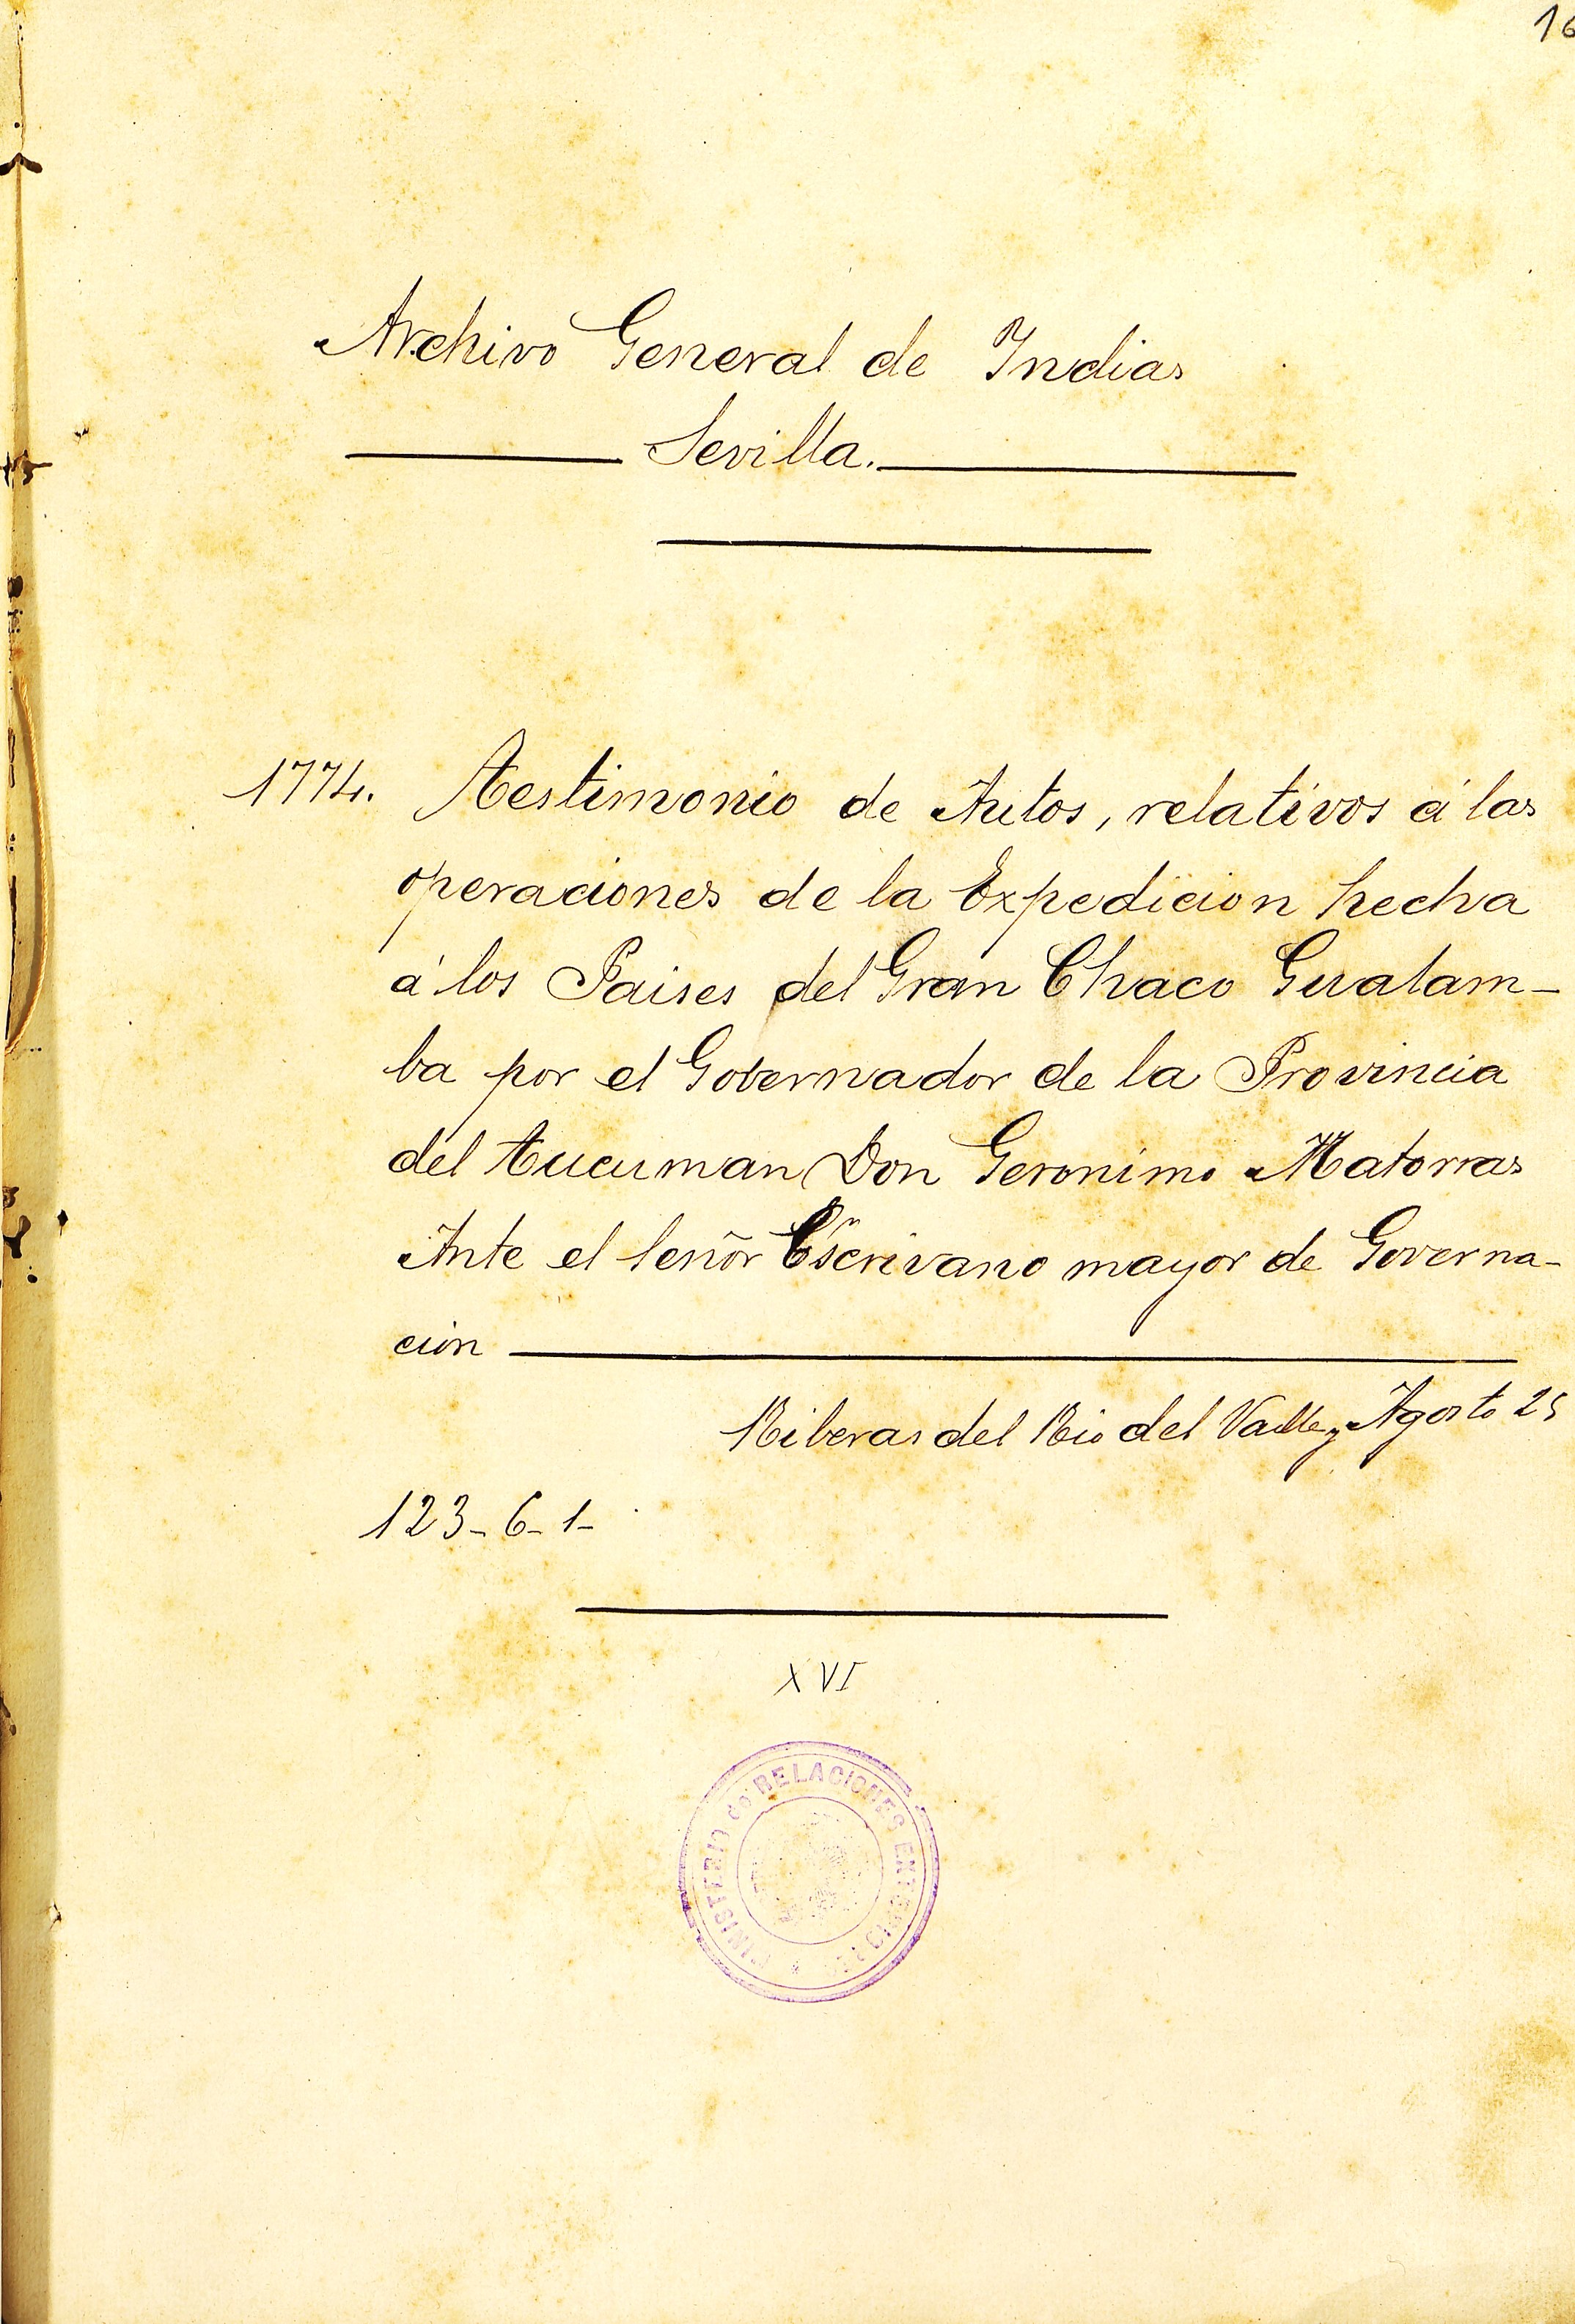 16
Archivo General de Indias
Sevilla.
1774. Testimonio de Autos, relativos á las
operaciones de la Expedicion hecha
á los Paises del Gran Chaco Gualam-
ba por el Governador de la Provincia
del Tucuman Don Geronimo Matorras
Ante el señor Escrivano mayor de Governa-
cion
Riberas del Rio del Valle y Agosto 25
123-6-1-
XVI
MINISTERIO de RELACIONES EXTERIORES